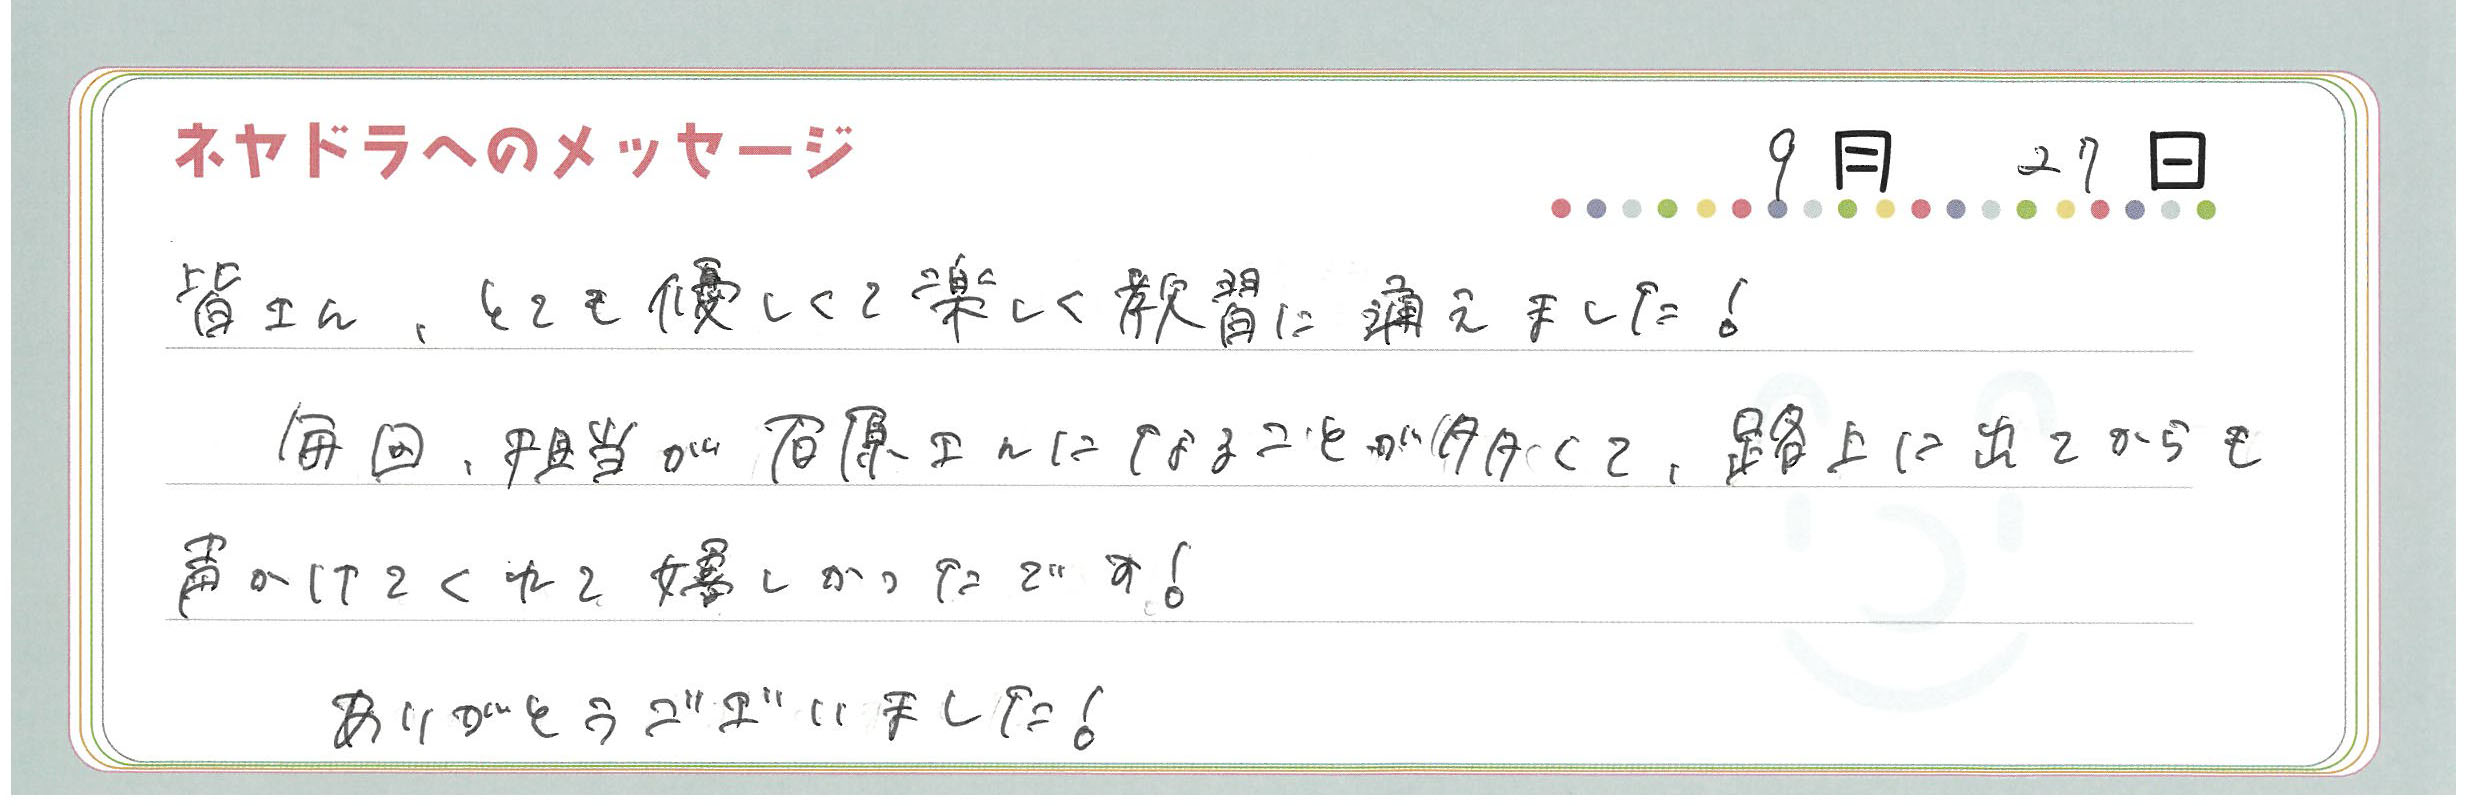 ネヤドラへのメッセージ
9月 27日
皆さん、とても優しくて楽しく教習に通えました!
毎回、担当が石原さんになることが多くて、路上に出てからも
声かけてくれて嬉しかったです!
ありがとうございました!